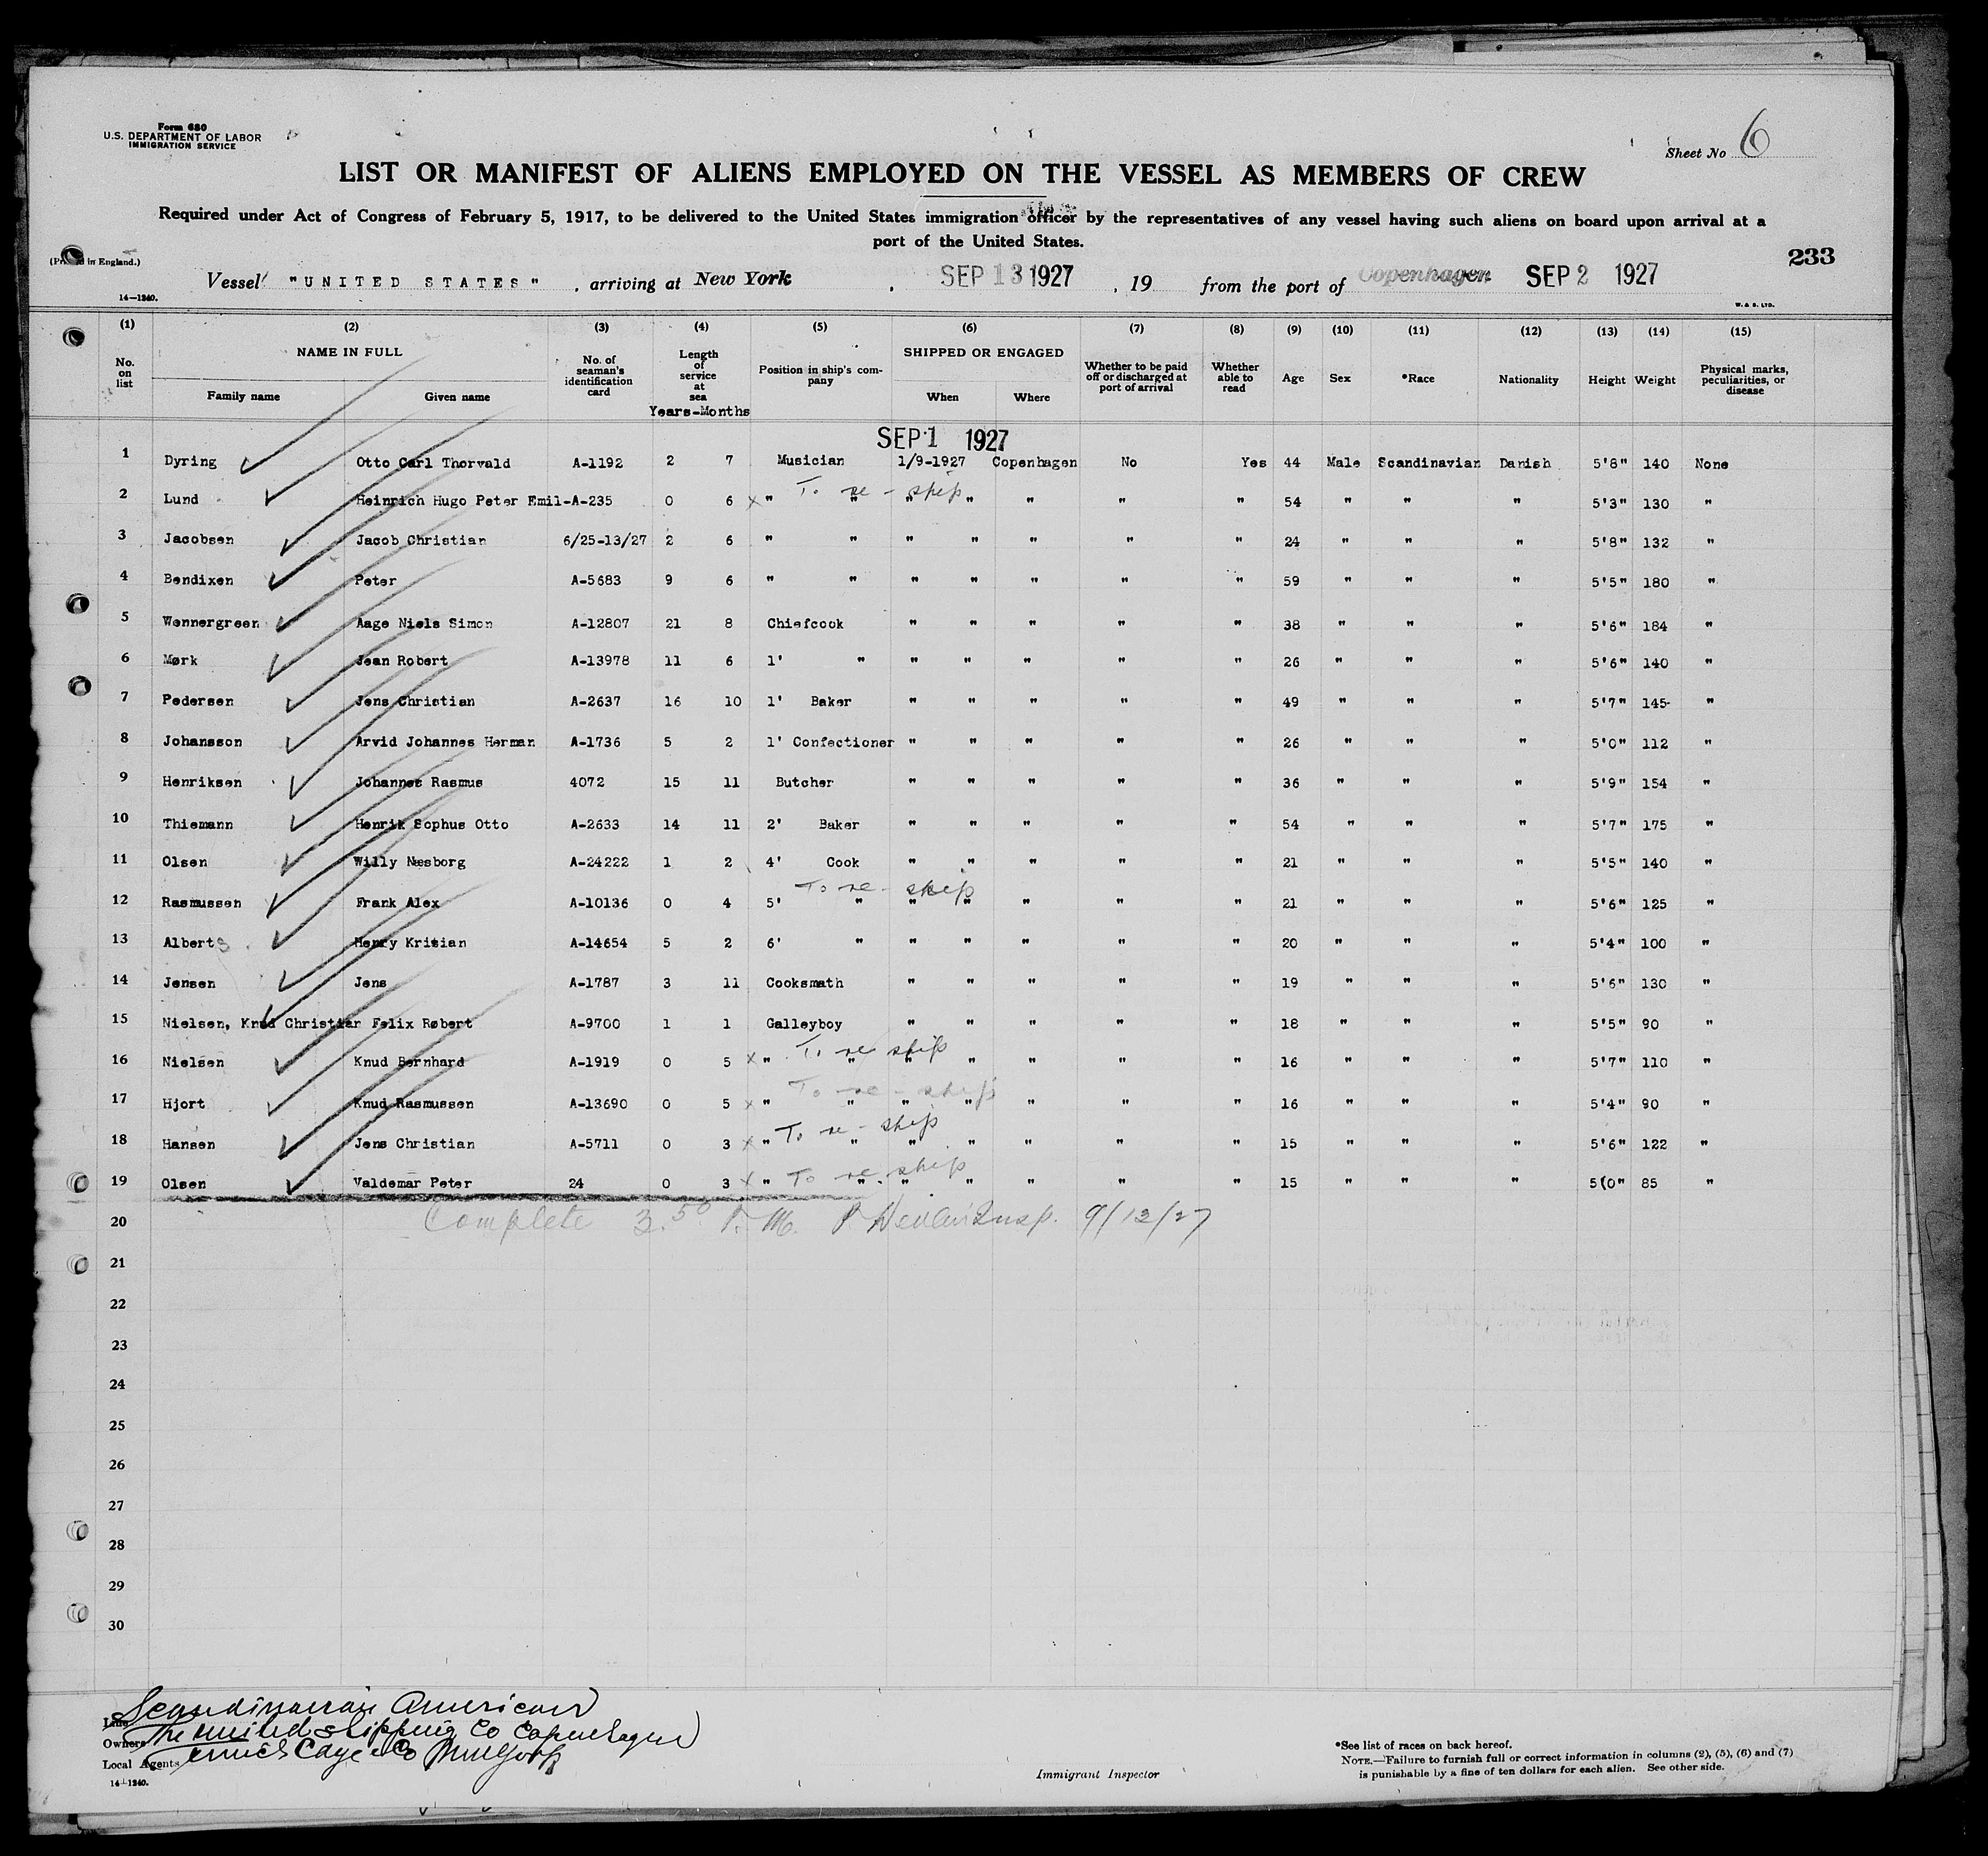 Form 680
U.S. DEPARTMENT OF LABOR
IMMIGRATION SERVICE
Sheet No 6
LIST OR MANIFEST OF ALIENS EMPLOYED ON THE VESSEL AS MEMBERS OF CREW
Required under Act of Congress of February 5, 1917, to be delivered to the United States immigration officer by the representatives of any vessel having such aliens on board upon arrival at a
port of the United States.
233
(Printed in England.)
Vessel "UNITED STATES" , arriving at New York , SEP 13 1927 , 19 from the port of Copenhagen SEP 2 1927
14—1240.
W. & S. LTD.
(1) (2) (3) (4) (5) (6) (7) (8) (9) (10) (11) (12) (13) (14) (15)
No. on list NAME IN FULL Family name Given name No. of seaman's identification card Length of service at sea Years-Months Position in ship's company SHIPPED OR ENGAGED When Where Whether to be paid off or discharged at port of arrival Whether able to read Age Sex *Race Nationality Height Weight Physical marks, peculiarities, or disease
SEP 1 1927
1 Dyring Otto Carl Thorvald A-1192 2 7 Musician 1/9-1927 Copenhagen No Yes 44 Male Scandinavian Danish 5'8" 140 None
To re-ship
2 Lund Heinrich Hugo Peter Emil-A-235 0 6 x " " " " " " " 54 " " " 5'3" 130 "
3 Jacobsen Jacob Christian 6/25-13/27 2 6 " " " " " " " 24 " " " 5'8" 132 "
4 Bendixen Peter A-5683 9 6 " " " " " " " 59 " " " 5'5" 180 "
5 Wennergreen Aage Niels Simon A-12807 21 8 Chiefcook " " " " " 38 " " " 5'6" 184 "
6 Mørk Jean Robert A-13978 11 6 1' " " " " " " 26 " " " 5'6" 140 "
7 Pedersen Jens Christian A-2637 16 10 1' Baker " " " " " 49 " " " 5'7" 145 "
8 Johansson Arvid Johannes Herman A-1736 5 2 1' Confectioner " " " " " 26 " " " 5'0" 112 "
9 Henriksen Johannes Rasmus 4072 15 11 Butcher " " " " " 36 " " " 5'9" 154 "
10 Thiemann Henrik Sophus Otto A-2633 14 11 2' Baker " " " " " 54 " " " 5'7" 175 "
11 Olsen Willy Næsborg A-24222 1 2 4' Cook " " " " " 21 " " " 5'5" 140 "
To re-ship
12 Rasmussen Frank Alex A-10136 0 4 5' " " " " " " 21 " " " 5'6" 125 "
13 Alberts Henry Kristian A-14654 5 2 6' " " " " " " 20 " " " 5'4" 100 "
14 Jensen Jens A-1787 3 11 Cooksmath " " " " " 19 " " " 5'6" 130 "
15 Nielsen, Knud Christian Felix Røbert A-9700 1 1 Galleyboy " " " " " 18 " " " 5'5" 90 "
To re ship
16 Nielsen Knud Bernhard A-1919 0 5 x " " " " " " " 16 " " " 5'7" 110 "
To re-ship
17 Hjort Knud Rasmussen A-13690 0 5 x " " " " " " " 16 " " " 5'4" 90 "
To re-ship
18 Hansen Jens Christian A-5711 0 3 x " " " " " " " 15 " " " 5'6" 122 "
To re-ship
19 Olsen Valdemar Peter 24 0 3 x " " " " " " " 15 " " " 5(0" 85 "
20 Complete 3.50 P.M. Insp. 9/13/27
21
22
23
24
25
26
27
28
29
30
Line Scandinavian American
Owners The United Shipping Co Copenhagen
Local Agents
14—1240.
Immigrant Inspector
*See list of races on back hereof.
NOTE.—Failure to furnish full or correct information in columns (2), (5), (6) and (7)
is punishable by a fine of ten dollars for each alien. See other side.